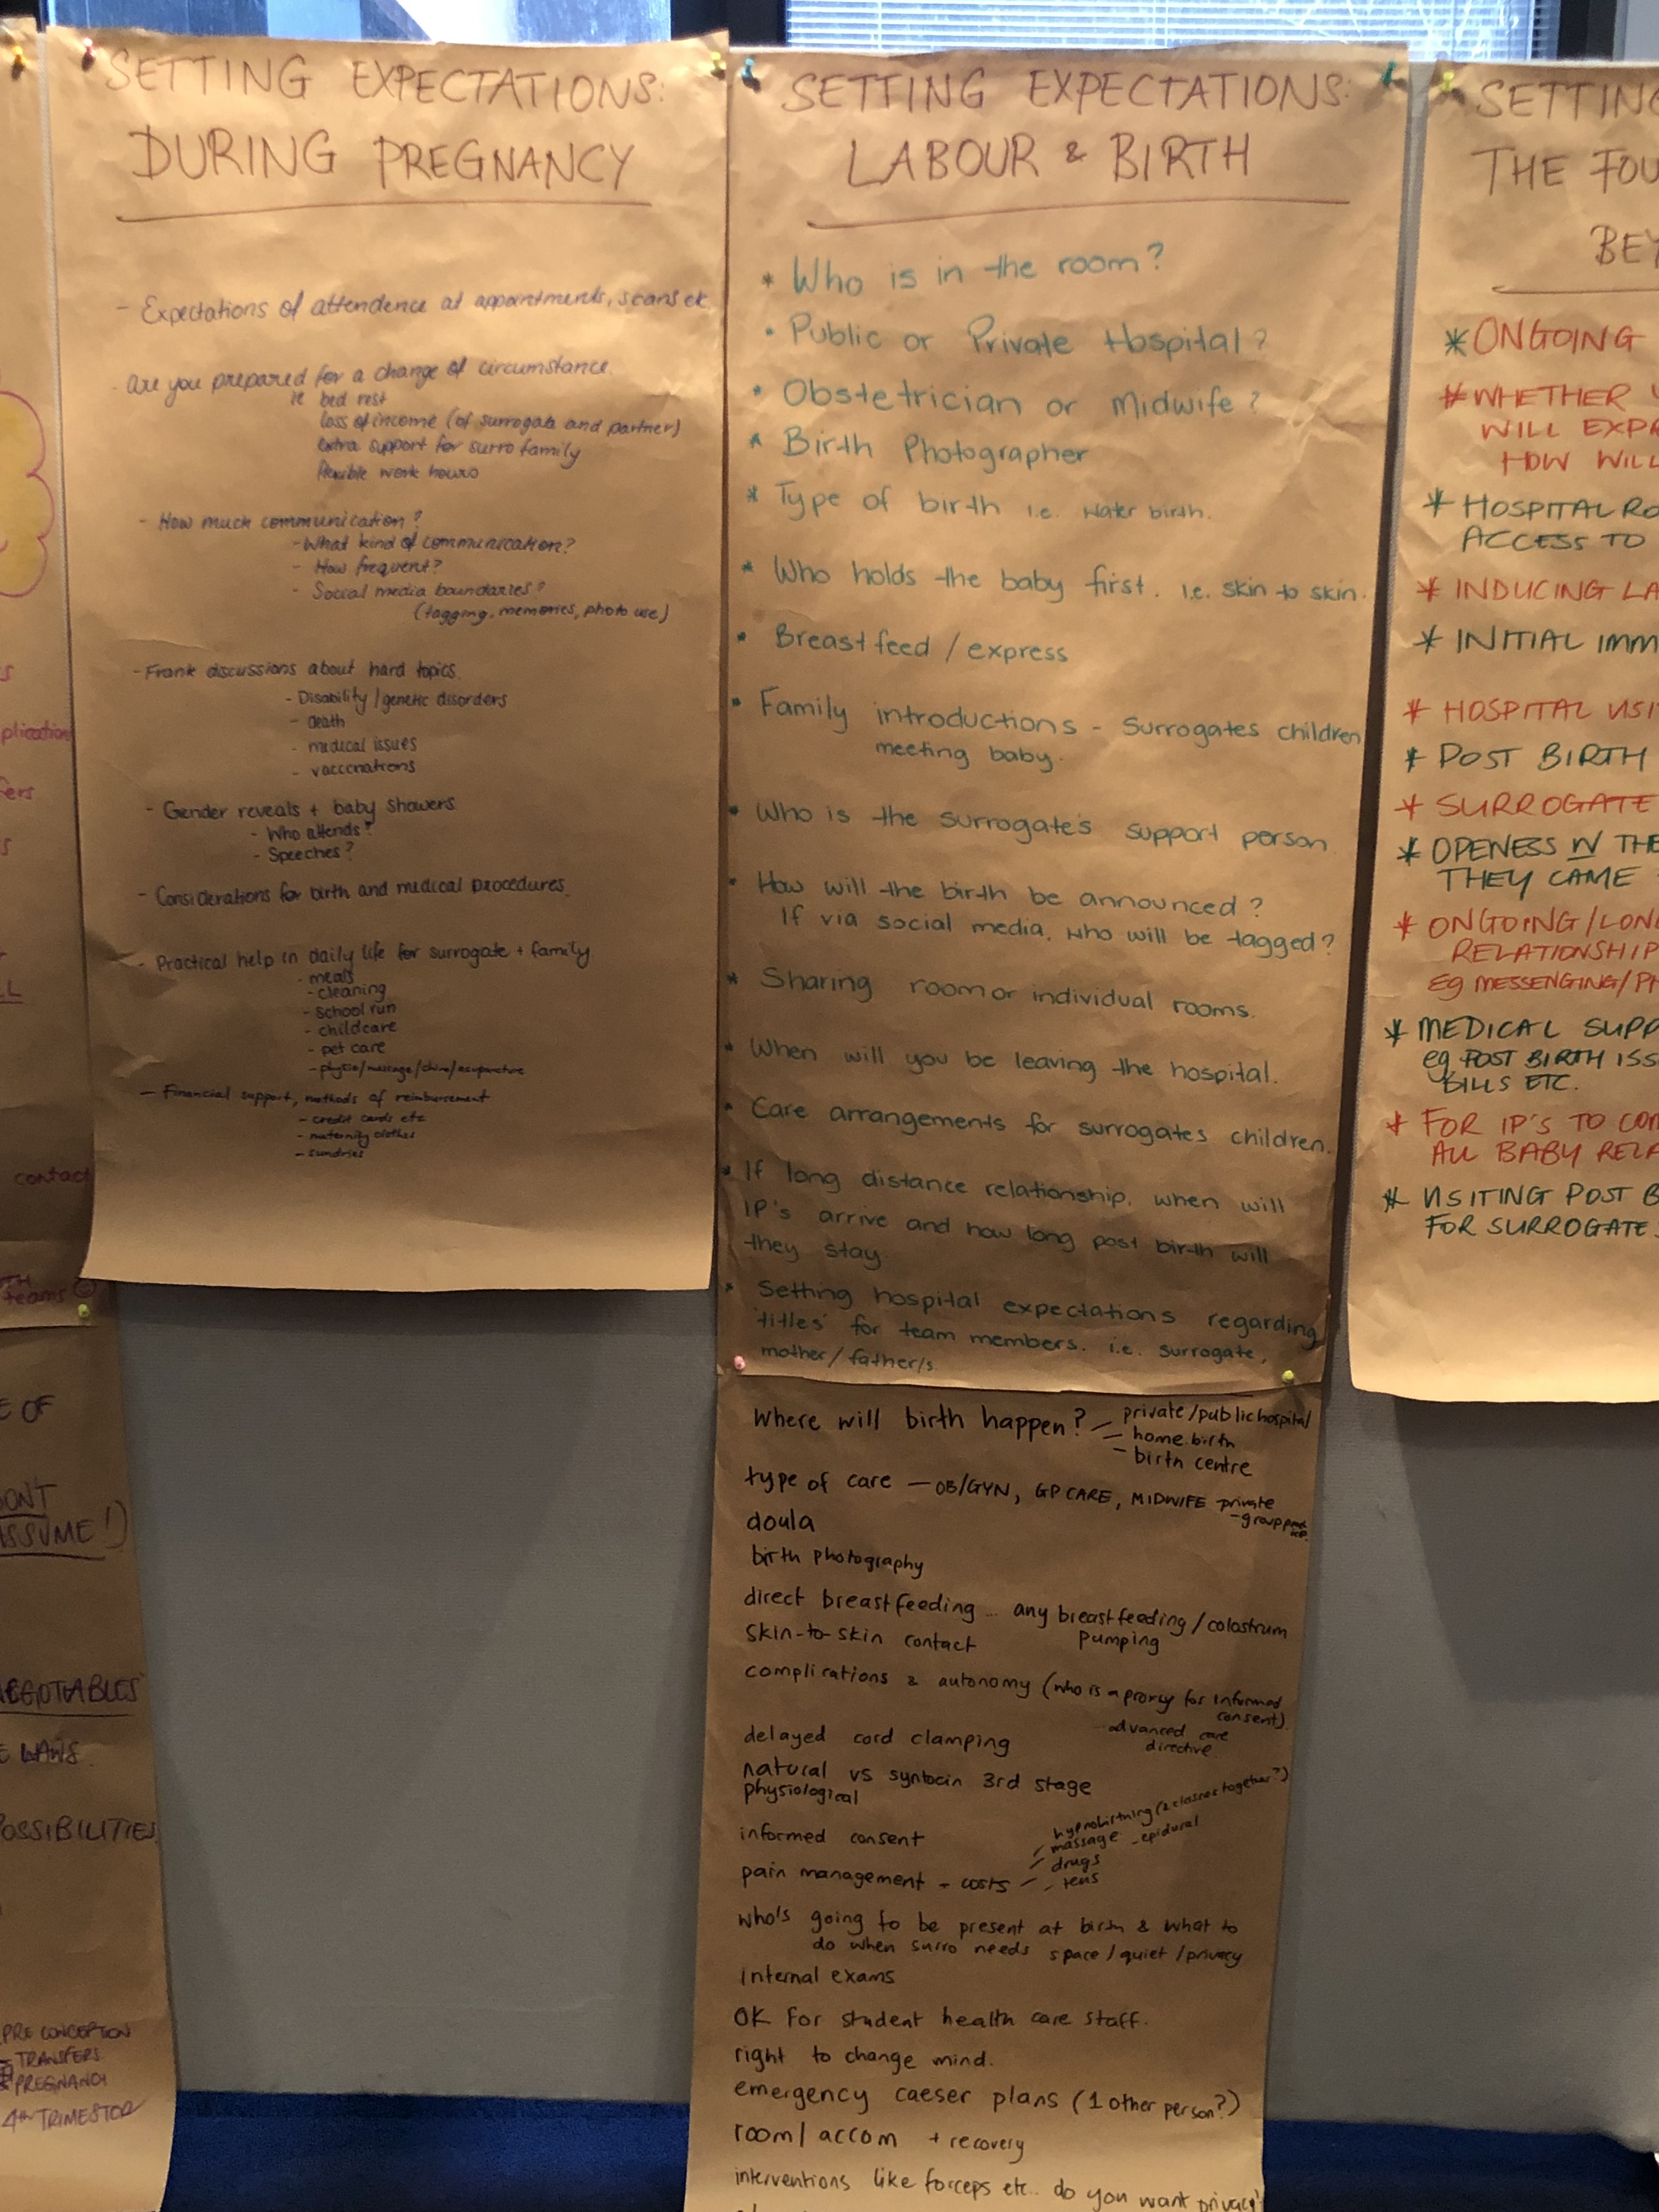 SETTING EXPECTATIONS:
DURING PREGNANCY
- Expectations of attendence at appointments, scans etc
- Are you prepared for a change of circumstance.
ie bed rest
loss of income (of surrogate and partner)
extra support for surro family
flexible work hours
- How much communication?
- What kind of communication?
- How frequent?
- Social media boundaries?
(tagging, memories, photo use)
- Frank discussions about hard topics.
- Disability/genetic disorders
- death
- medical issues
- vacccnations
- Gender reveals + baby showers
- Who attends?
- Speeches?
- Considerations for birth and medical procedures.
- Practical help in daily life for surrogate + family
- meals
- cleaning
- school run
- childcare
- pet care
- physio/massage/chiro/acupuncture
- Financial support, methods of reimbursement
- credit cards etc
- maternity clothes
- sundries
SETTING EXPECTATIONS:
LABOUR & BIRTH
* Who is in the room?
• Public or Private Hospital?
• Obstetrician or Midwife?
* Birth Photographer
* Type of birth i.e. Water birth.
* Who holds the baby first. i.e. skin to skin.
• Breastfeed / express
* Family introductions - Surrogates children
meeting baby.
* Who is the surrogate's support person
• How will the birth be announced?
If via social media, who will be tagged?
* Sharing room or individual rooms.
* When will you be leaving the hospital.
• Care arrangements for surrogates children.
• If long distance relationship, when will
IP's arrive and how long post birth will
they stay.
* Setting hospital expectations regarding
'titles' for team members. i.e. surrogate,
mother/father/s.
Where will birth happen? - private/public hospital
- home birth
- birth centre
type of care - OB/GYN, GP CARE, MIDWIFE - private
- group
doula
birth photography
direct breastfeeding ... any breastfeeding/colostrum
pumping
skin-to-skin contact
complications & autonomy (who is a proxy for informed
consent)
advanced care
directive.
delayed cord clamping
natural vs syntocin 3rd stage
physiological
informed consent
pain management - costs
hypnobirthing (2 classes together?)
massage - epidural
drugs
tens
who's going to be present at birth & what to
do when surro needs space/quiet/privacy
internal exams
OK for student health care staff.
right to change mind.
emergency caeser plans (1 other person?)
room/accom + recovery
interventions like forceps etc.. do you want privacy?
SETTING
THE FOU
BEY
* ONGOING
* WHETHER
WILL EXPR
HOW WILL
* HOSPITAL RO
ACCESS TO
* INDUCING LA
* INITIAL IMM
* HOSPITAL VISI
* POST BIRTH
* SURROGATE
* OPENESS IN THE
THEY CAME
* ONGOING/LON
RELATIONSHIP
EG MESSENGING/PH
* MEDICAL SUPP
eg POST BIRTH ISS
BILLS ETC.
* FOR IP'S TO CO
ALL BABY RELA
* VISITING POST B
FOR SURROGATE.
plication
fers
contact
teams
E OF
DONT
ASSUME!)
NEGOTIABLES
E LAWS
POSSIBILITIES
PRE CONCEPTION
- TRANSFERS
PREGNANCY
4TH TRIMESTOR